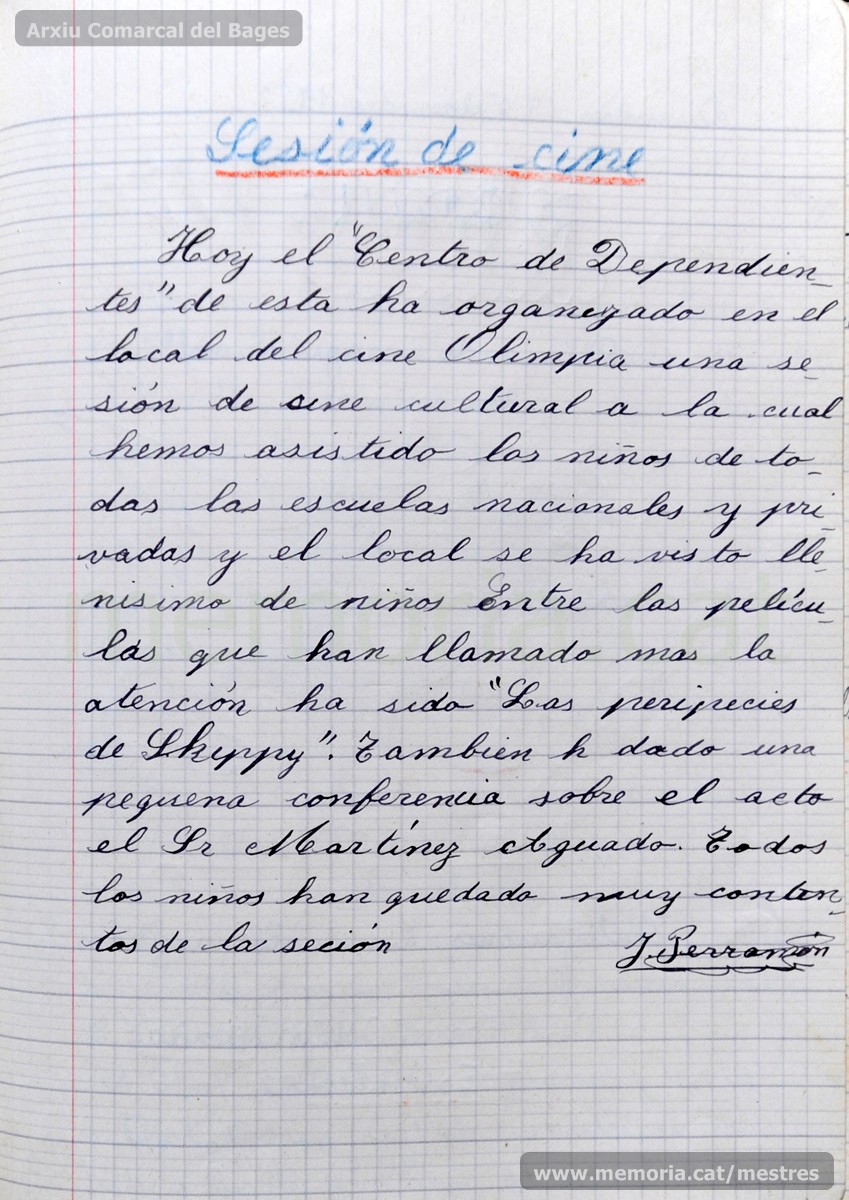 Arxiu Comarcal del Bages
Sesión de cine
Hoy el "Centro de Dependien-
tes" de esta ha organizado en el
local del cine Olimpia una se-
sión de cine cultural a la cual
hemos asistido los niños de to-
das las escuelas nacionales y pri-
vadas y el local se ha visto lle-
nisimo de niños Entre las pelícu-
las que han llamado mas la
atención ha sido "Las peripecies
de Skyppy". Tambien h dado una
pequena conferencia sobre el acto
el Sr Martínez Aguado. Todos
los niños han quedado muy conten-
tos de la seción
J. Perramón
www.memoria.cat/mestres